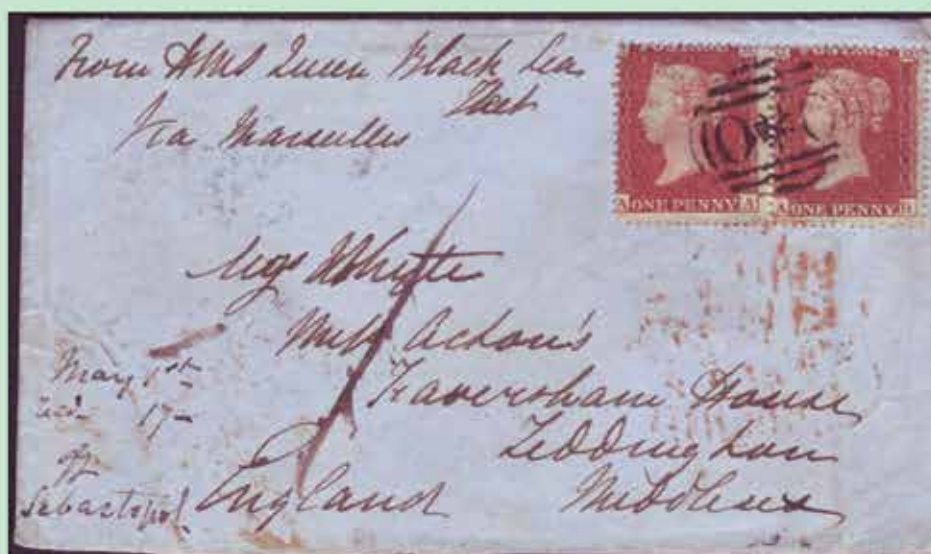 From HMS Queen Black Sea
Fleet
Via Marseilles
A ONE PENNY A
A ONE PENNY
O*O
Whyte
Miss Acton's
House
Teddington
Middlesex
England
May 1st
17
off
Sebastopol